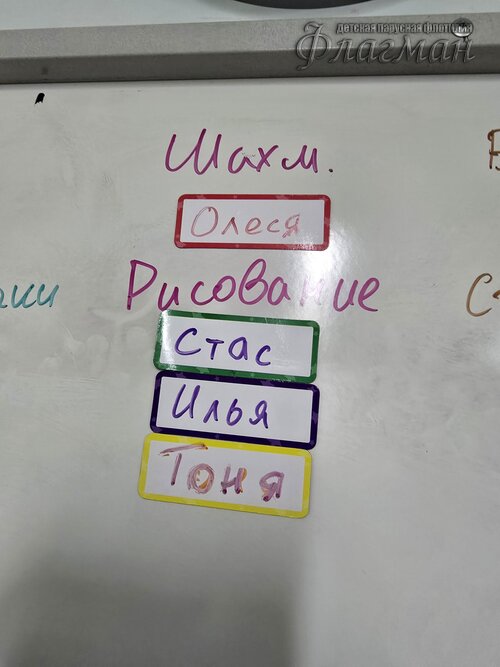 детская парусная флотилия
Флагман
Шахм.
Олеся
Рисование
Стас
Илья
Тоня